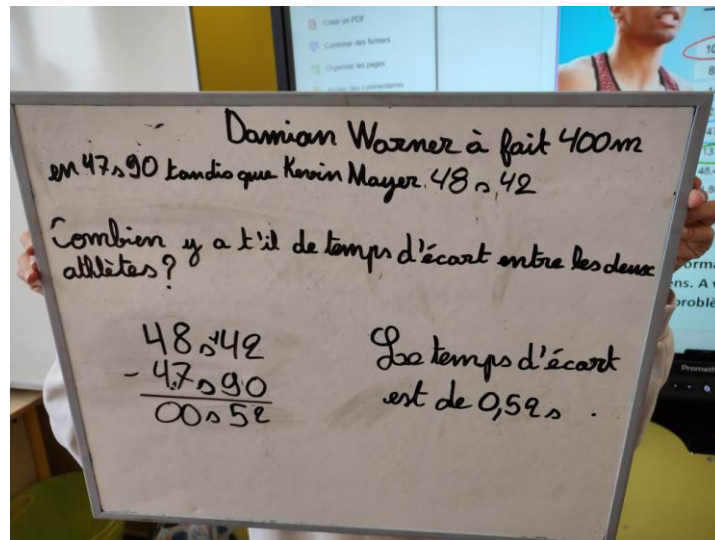 Créer un PDF
Combiner des fichiers
Organiser les pages
Damian Warner à fait 400m
en 47s90 tandis que Kevin Mayer. 48s,42
Combien y a t'il de temps d'écart entre les deux
athlètes?
48s42
- 47s90
00s52
Le temps d'écart
est de 0,52s.
Prometh